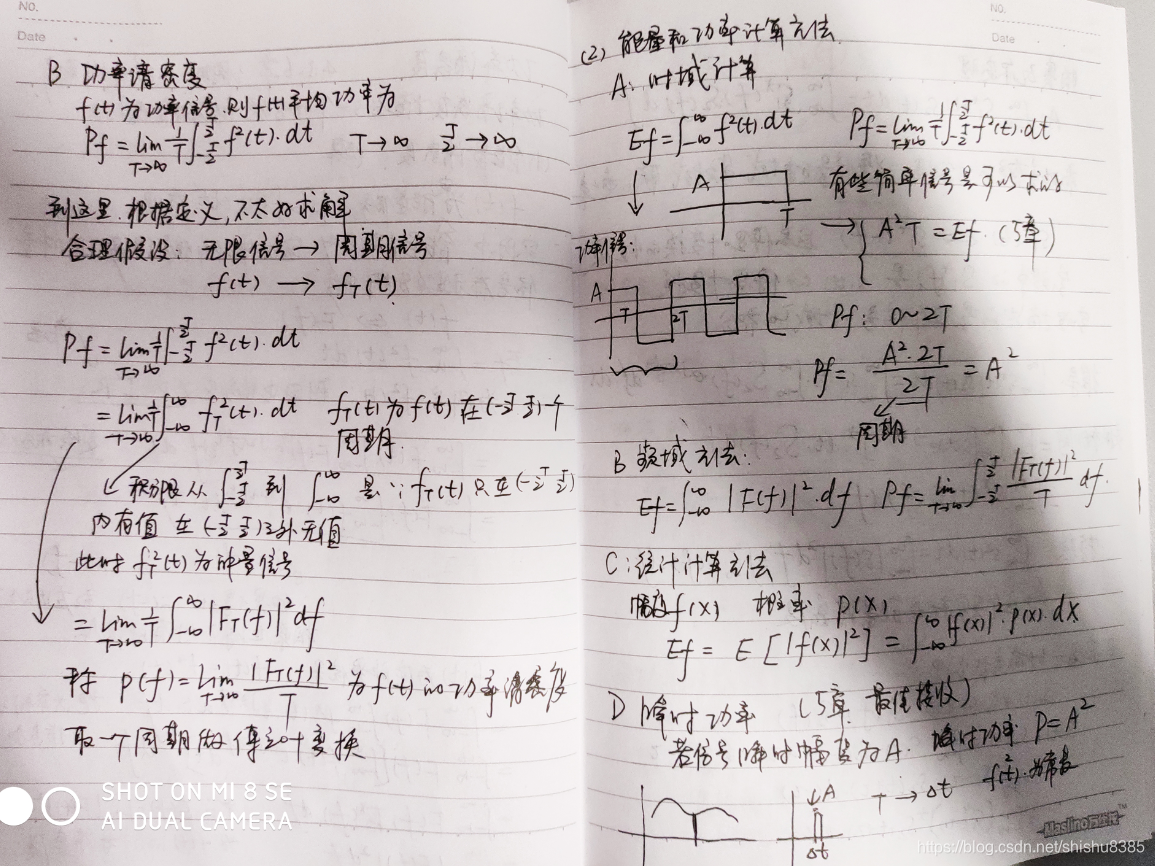 No.
Date
B 功率谱密度
f(t)为功率信号.则f(t)平均功率为
Pf = lim T→∞ 1/T ∫_{-T/2}^{T/2} f²(t)·dt T→∞ T/2→∞
到这里.根据定义,不太好求解
合理假设: 无限信号 → 周期信号
f(t) → f_T(t)
Pf = lim T→∞ 1/T ∫_{-T/2}^{T/2} f²(t)·dt
= lim T→∞ 1/T ∫_{-∞}^{∞} f_T²(t)·dt f_T(t)为f(t)在(-T/2 T/2)一个
周期.
积分限从 ∫_{-T/2}^{T/2} 到 ∫_{-∞}^{∞} 是∵f_T(t)只在(-T/2 T/2)
内有值 在(-T/2 T/2)之外无值
此时 f_T²(t)为能量信号
= lim T→∞ 1/T ∫_{-∞}^{∞} |F_T(f)|² df
称 P(f) = lim T→∞ |F_T(f)|²/T 为f(t)的功率谱密度
取一个周期做傅立叶变换
SHOT ON MI 8 SE
AI DUAL CAMERA
No.
Date
(2) 能量和功率计算方法
A: 时域计算
Ef = ∫_{-∞}^{∞} f²(t)·dt Pf = lim T→∞ 1/T ∫_{-T/2}^{T/2} f²(t)·dt
A T
有些简单信号是可以求的
→ { A²T = Ef. (5章)
功率信号:
A T 2T
Pf: 0~2T
Pf = A²·2T/2T = A²
周期
B 频域方法:
Ef = ∫_{-∞}^{∞} |F(f)|²·df. Pf = lim T→∞ ∫_{-T/2}^{T/2} |F_T(f)|²/T df.
C: 统计计算方法
幅度f(x) 概率 P(x)
Ef = E[|f(x)|²] = ∫_{-∞}^{∞} |f(x)|²·P(x)·dx
D 瞬时功率 (5章 最佳接收)
若信号瞬时幅度为A. 瞬时功率 P = A²
T → Δt f²(t)为常数
↓A
Δt
Maslino
https://blog.csdn.net/shishu8385